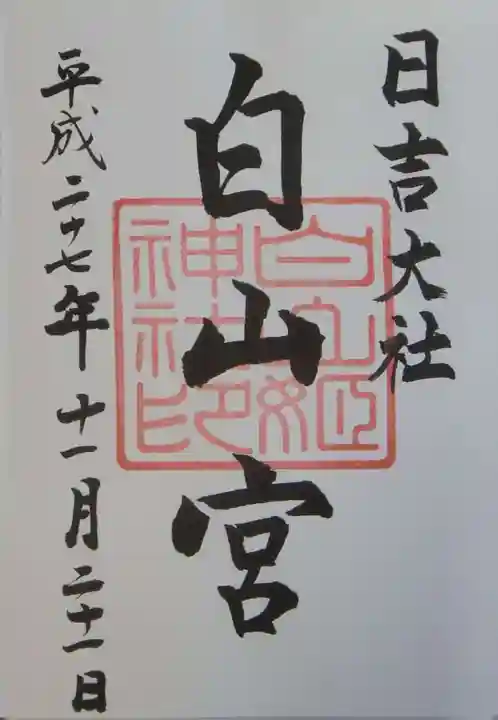 日吉大社
白山宮
平成二十七年十一月二十一日
白山姫
神社印